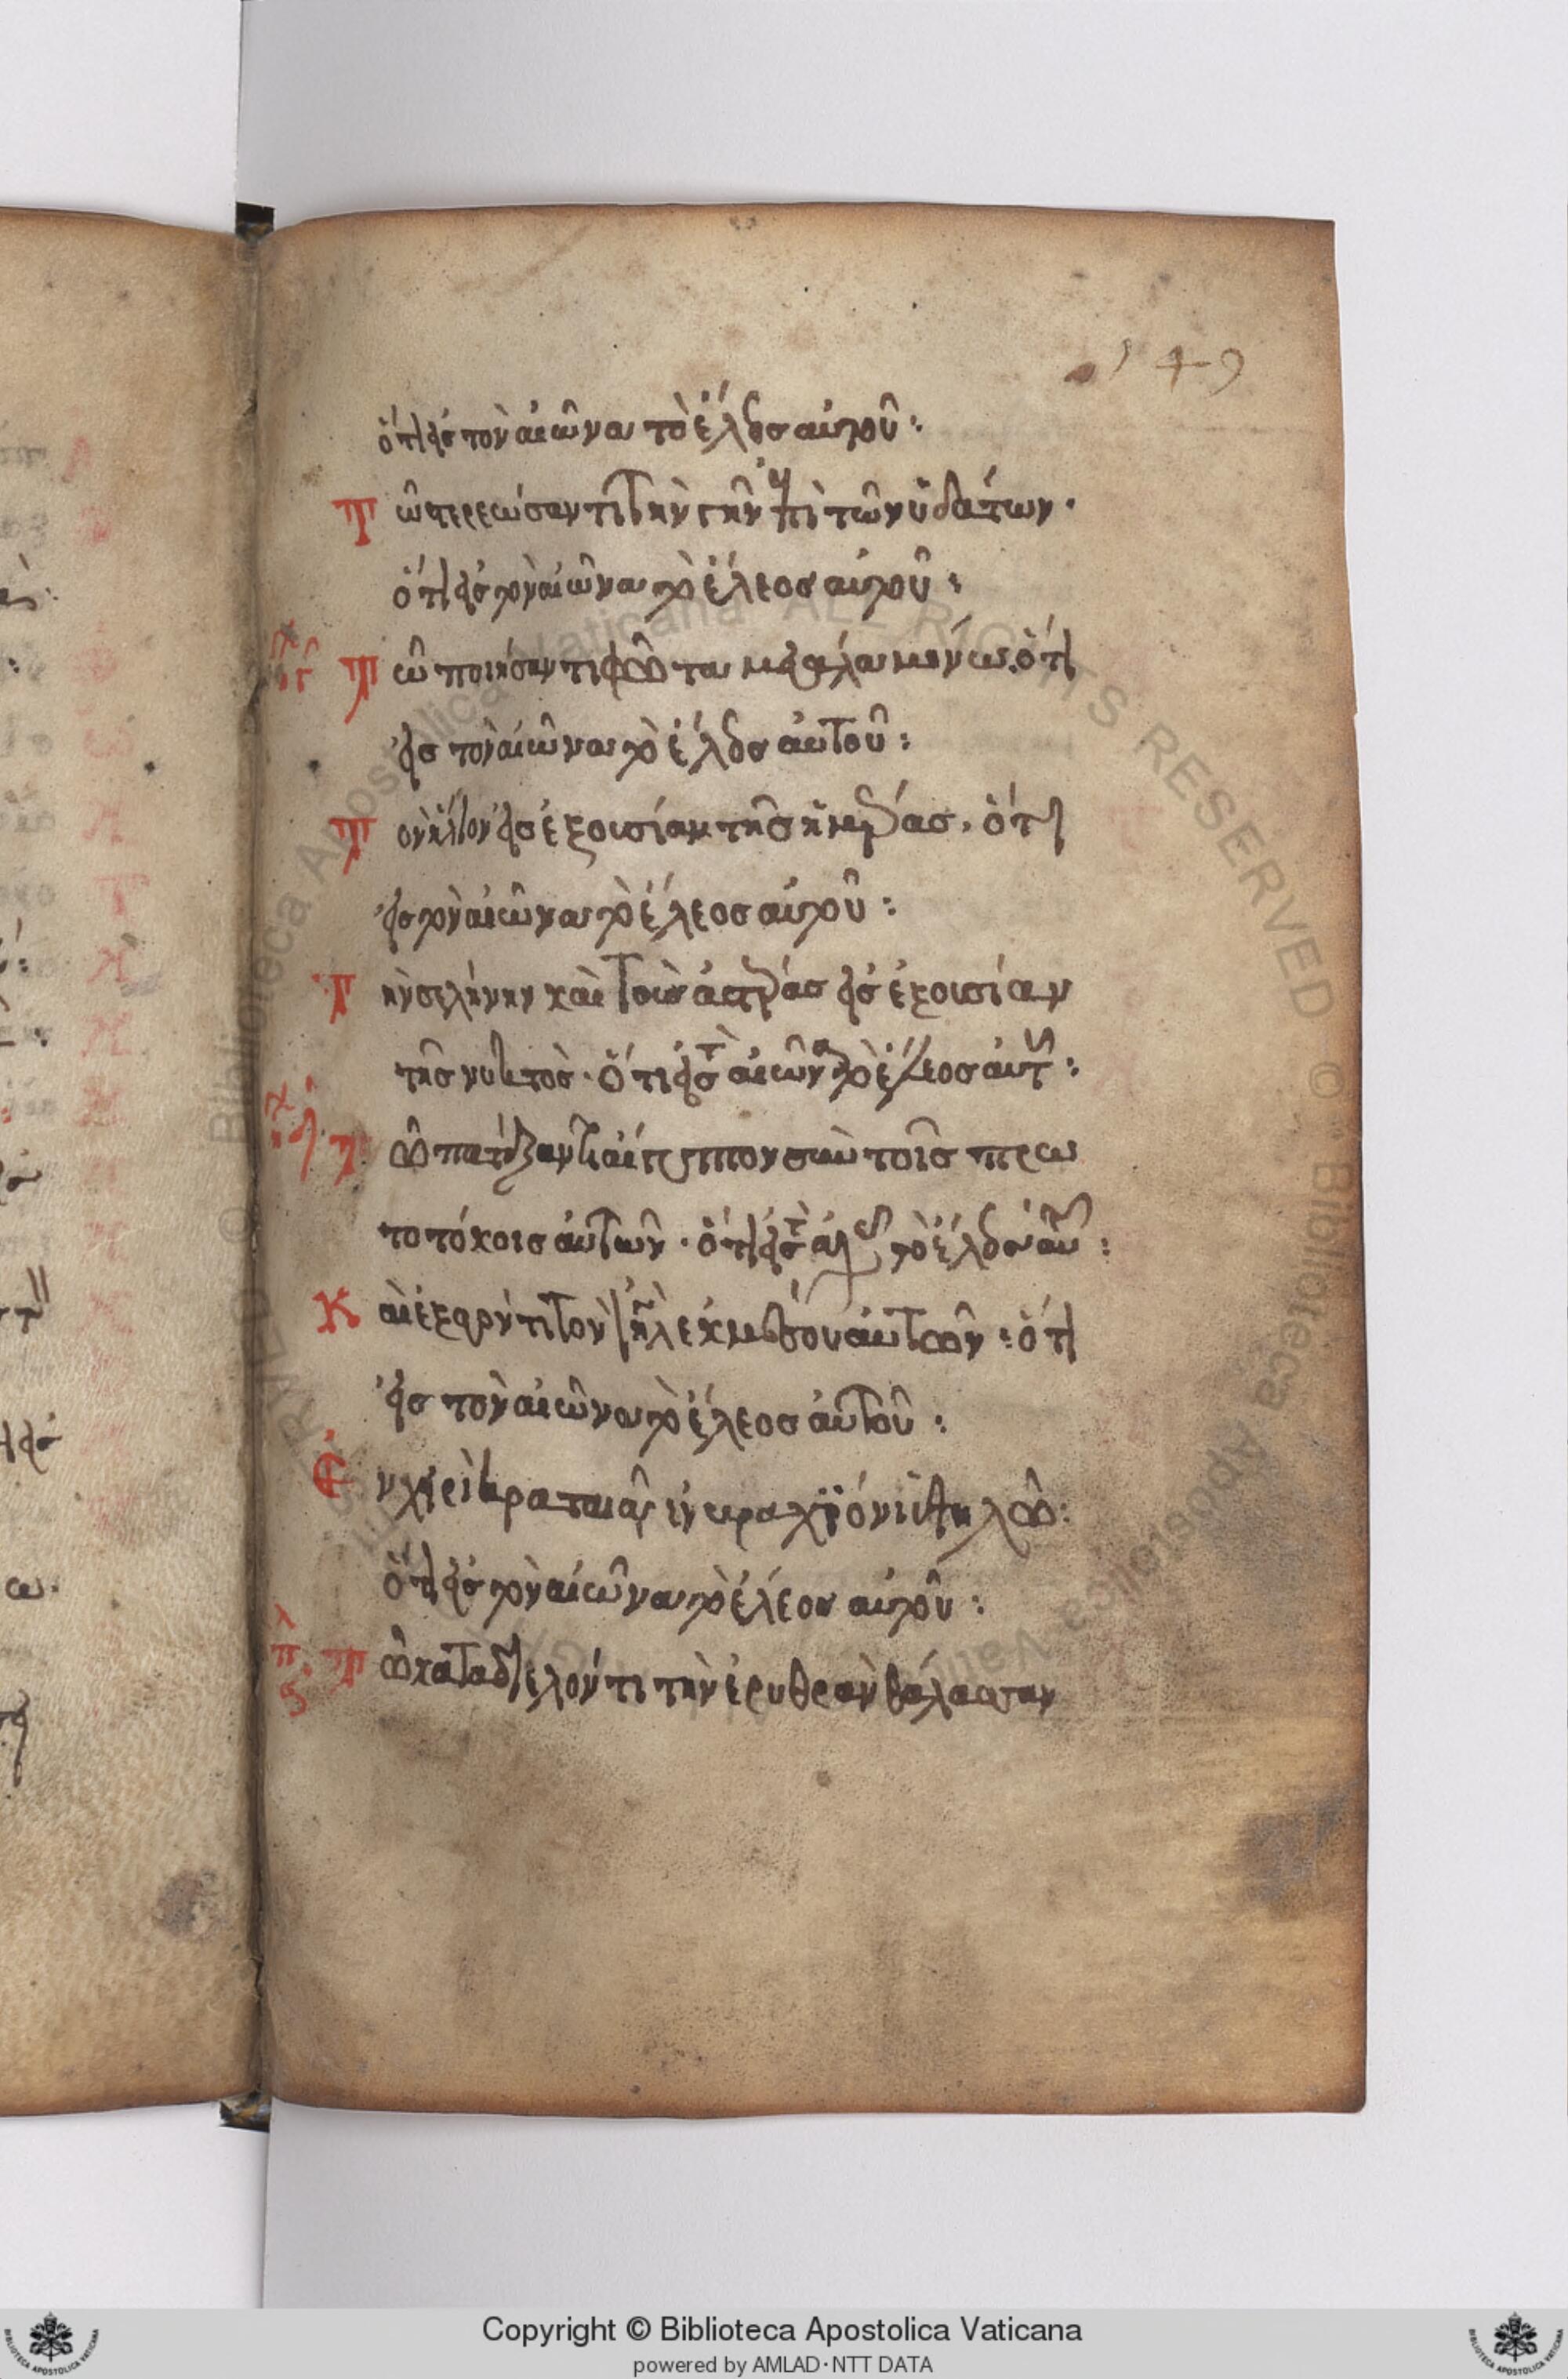 149
ὅτι εἰς τὸν αἰῶνα τὸ ἔλεος αὐτοῦ:
Τῶ στερεώσαντι τὴν γῆν ἐπὶ τῶν ὑδάτων·
ὅτι εἰς τὸν αἰῶνα τὸ ἔλεος αὐτοῦ:
Τῶ ποιήσαντι φῶτα μεγάλα μόνω. ὅτι
εἰς τὸν αἰῶνα τὸ ἔλεος αὐτοῦ:
Τὸν ἥλιον εἰς ἐξουσίαν τῆς ἡμέρας. ὅτι
εἰς τὸν αἰῶνα τὸ ἔλεος αὐτοῦ:
Τὴν σελήνην καὶ τοὺς ἀστέρας εἰς ἐξουσίαν
τῆς νυκτὸς· ὅτι εἰς τὸν αἰῶνα τὸ ἔλεος αὐτοῦ:
Τῶ πατάξαντι αἴγυπτον σὺν τοῖς πρω
τοτόκοις αὐτῶν· ὅτι εἰς τὸν τὸ ἔλεος αὐτοῦ:
Καὶ ἐξαγαγόντι τὸν ἰηλ ἐκ μέσου αὐτῶν: ὅτι
εἰς τὸν αἰῶνα τὸ ἔλεος αὐτοῦ:
Ἐν χειρὶ κραταιᾶ ἐν βραχίονι ὑψηλῶ:
ὅτι εἰς τὸν αἰῶνα τὸ ἔλεος αὐτοῦ:
Τῶ καταδιελόντι τὴν ἐρυθρὰν θάλασσαν
Copyright © Biblioteca Apostolica Vaticana
powered by AMLAD·NTT DATA